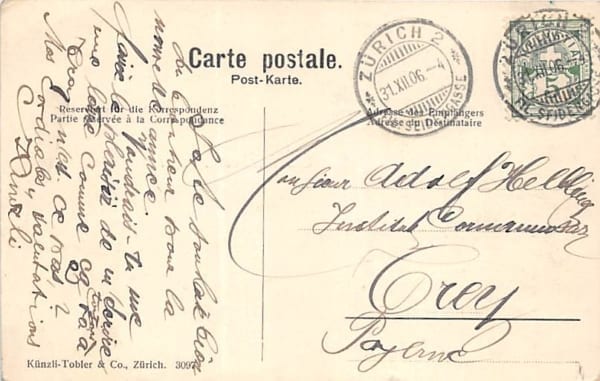 Carte postale.
Post-Karte.
Reserviert für die Korrespondenz
Partie réservée à la Correspondance
Adresse des Empfängers
Adresse du Destinataire
ZÜRICH 2
31.XII.06. – 4
Je te souhaite bien
du bonheur pour la
nouvelle année.
Voudrais-tu me
faire le plaisir de m'écrire
une carte comme ça
Mes cordiales salutations
Monsieur Adolf Helbling
Institut
Trey
Payerne
Künzli-Tobler & Co., Zürich. 3097